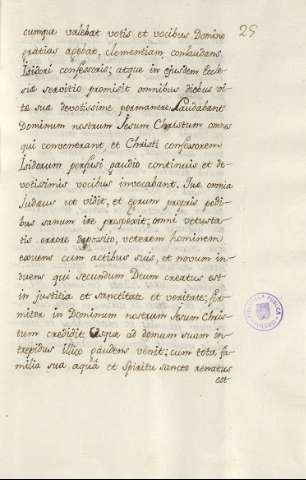 25
cumque valebat votis et vocibus Domino
gratias agebat, clementiam conlaudans
Isidori confessoris; atque in ejusdem Eccle-
siæ servitio promisit omnibus diebus vi-
tæ suæ devotissime permanere. Laudabant
Dominum nostrum Jesum Christum omnes
qui convenerant, et Christi confessorem
Isidorum perfusi gaudio continuis et de-
votissimis vocibus invocabant. omnia
Judæus ut vidit, et egrum propriis pedi-
bus sanum ire prospexit; omni vetusta-
tis errore deposito, veterem hominem
exuens cum actibus suis, et novum in-
duens qui secundum Deum creatus est
in justitia et sanctitate et veritate; fir-
miter in Dominum nostrum Jesum Chris-
tum credidit. ad domum suam in-
trepidus illico gaudens venit; cum tota fa-
milia sua aquâ et Spiritu Sancto renatus
est